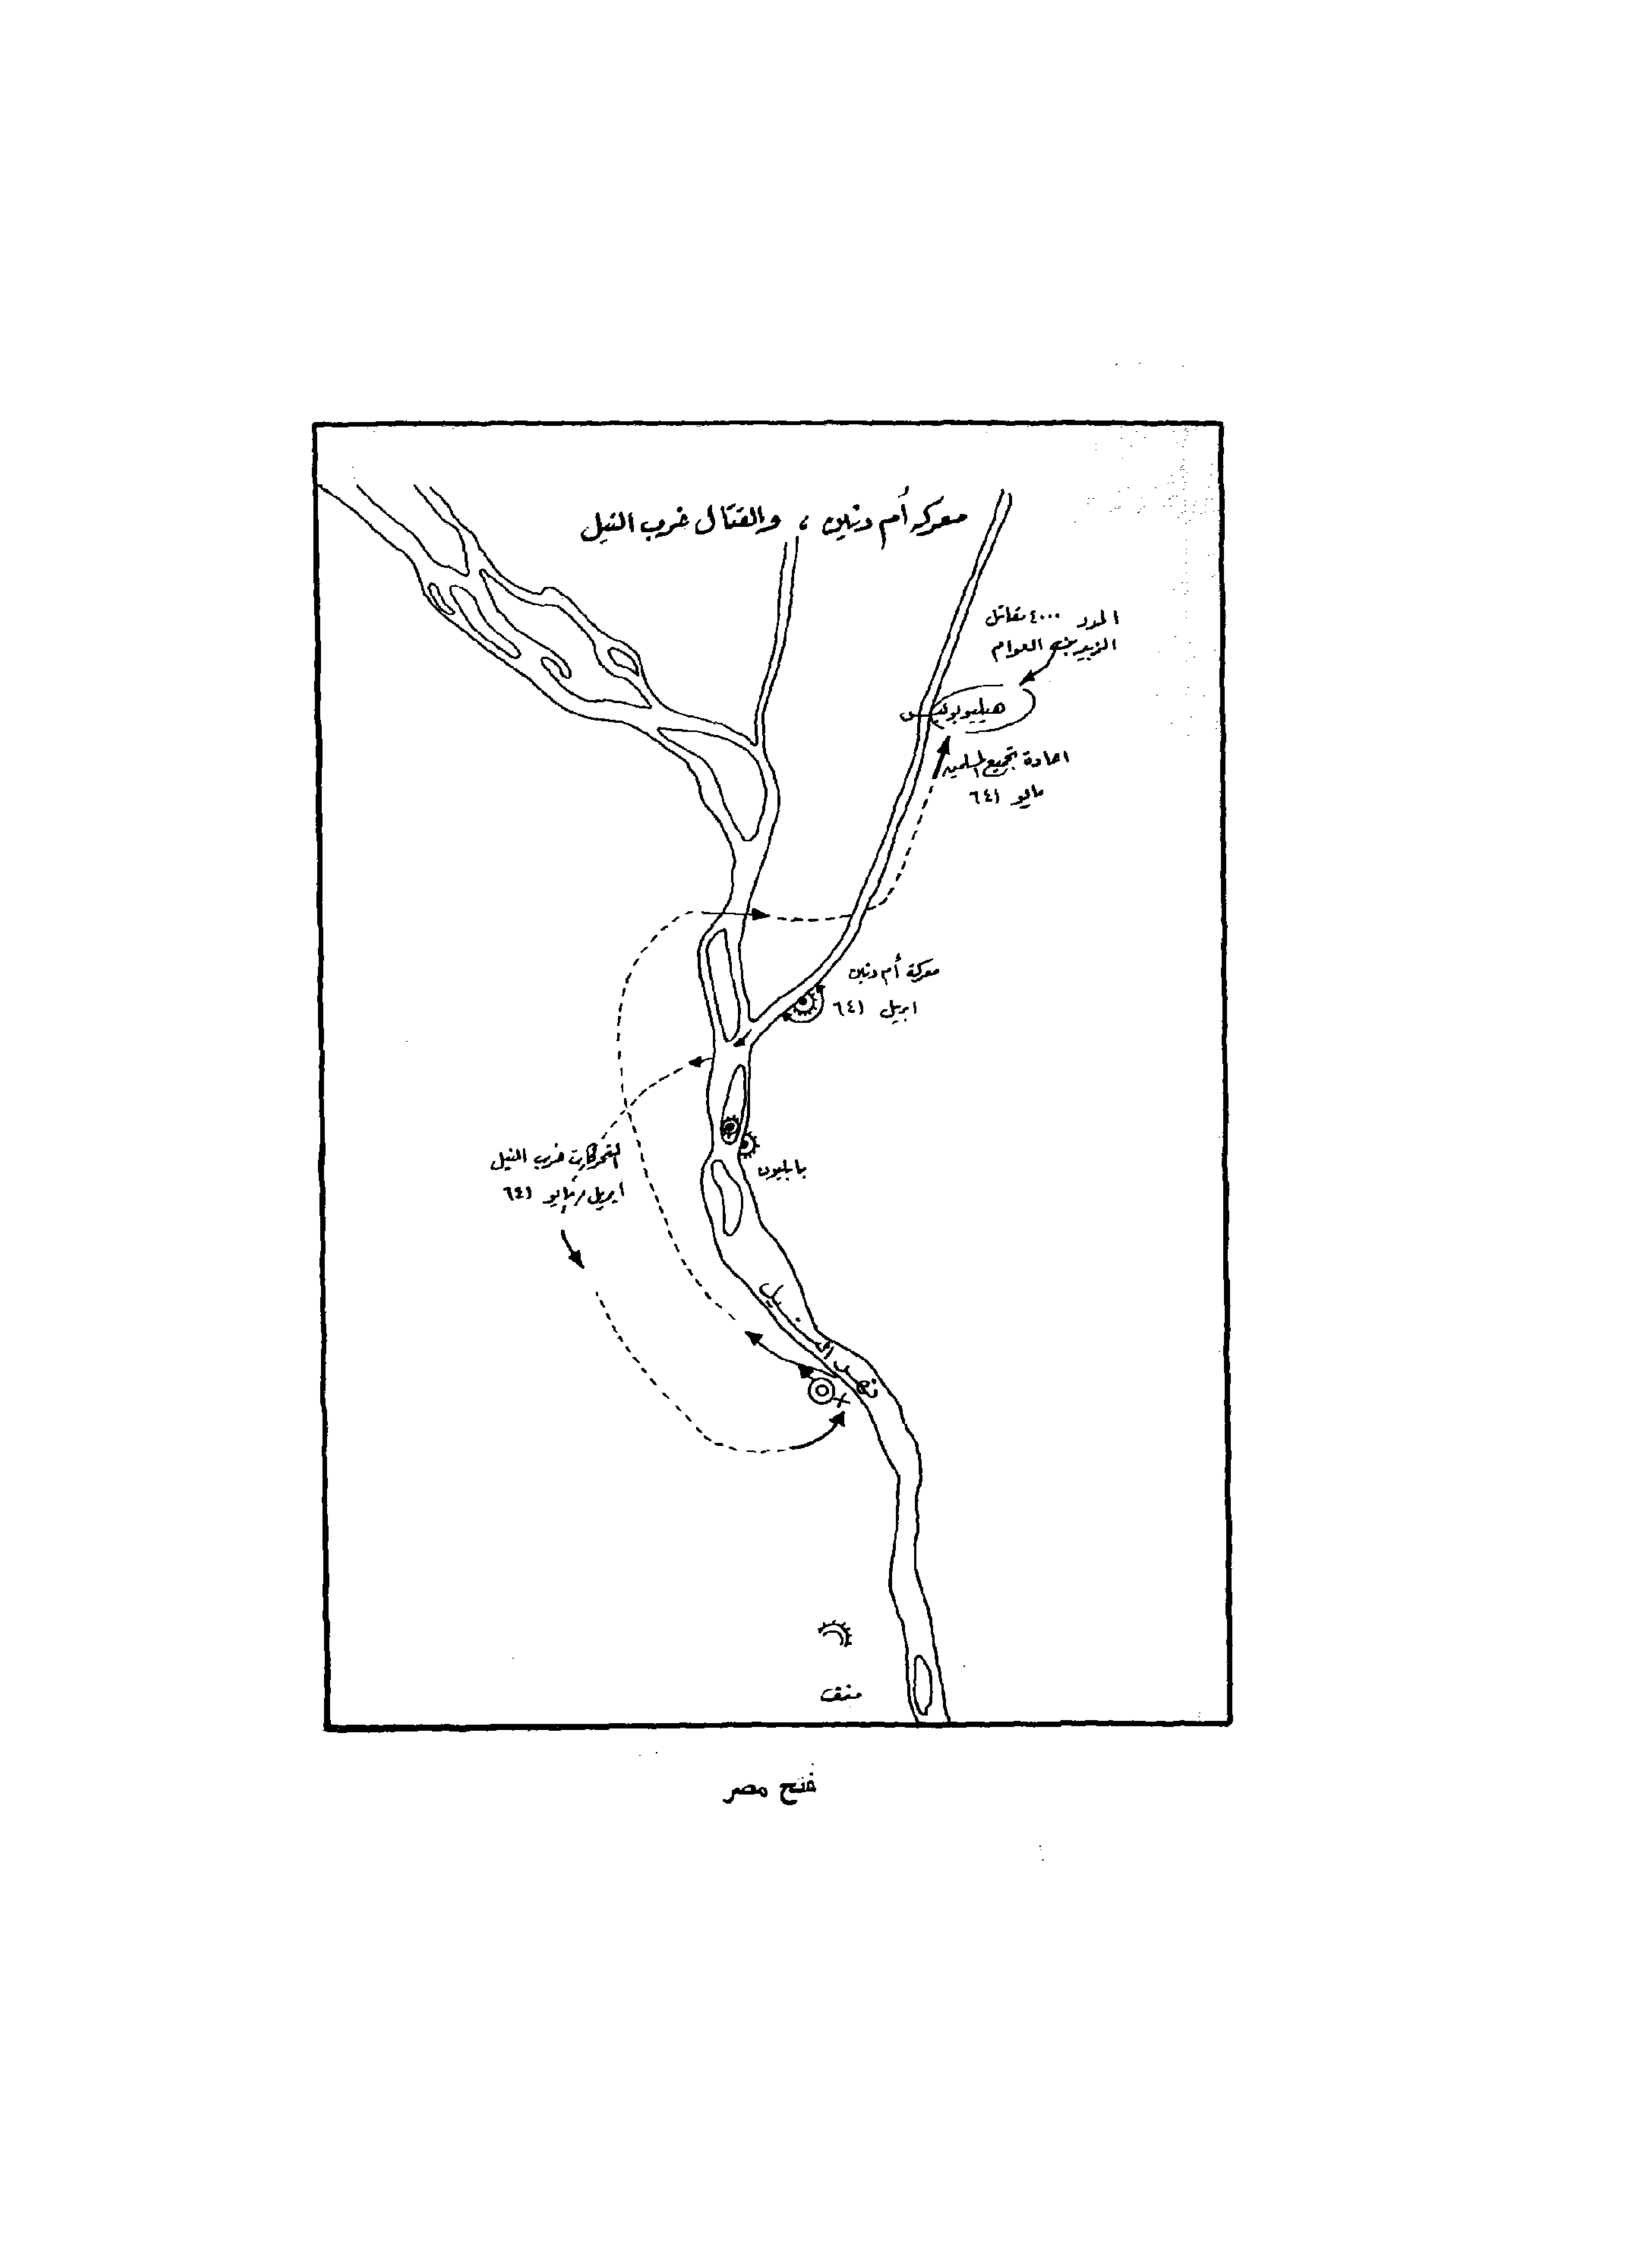 معركة أم دنين ، والقتال غرب النيل
المدد ٤٠٠٠ مقاتل
الزبير بن العوام
هيليوبوليس
اعادة تجميع المسلمين
مايو ٦٤١
معركة أم دنين
ابريل ٦٤١
التحركات غرب النيل
ابريل/مايو ٦٤١
بابليون
نهر النيل
منف
فتح مصر